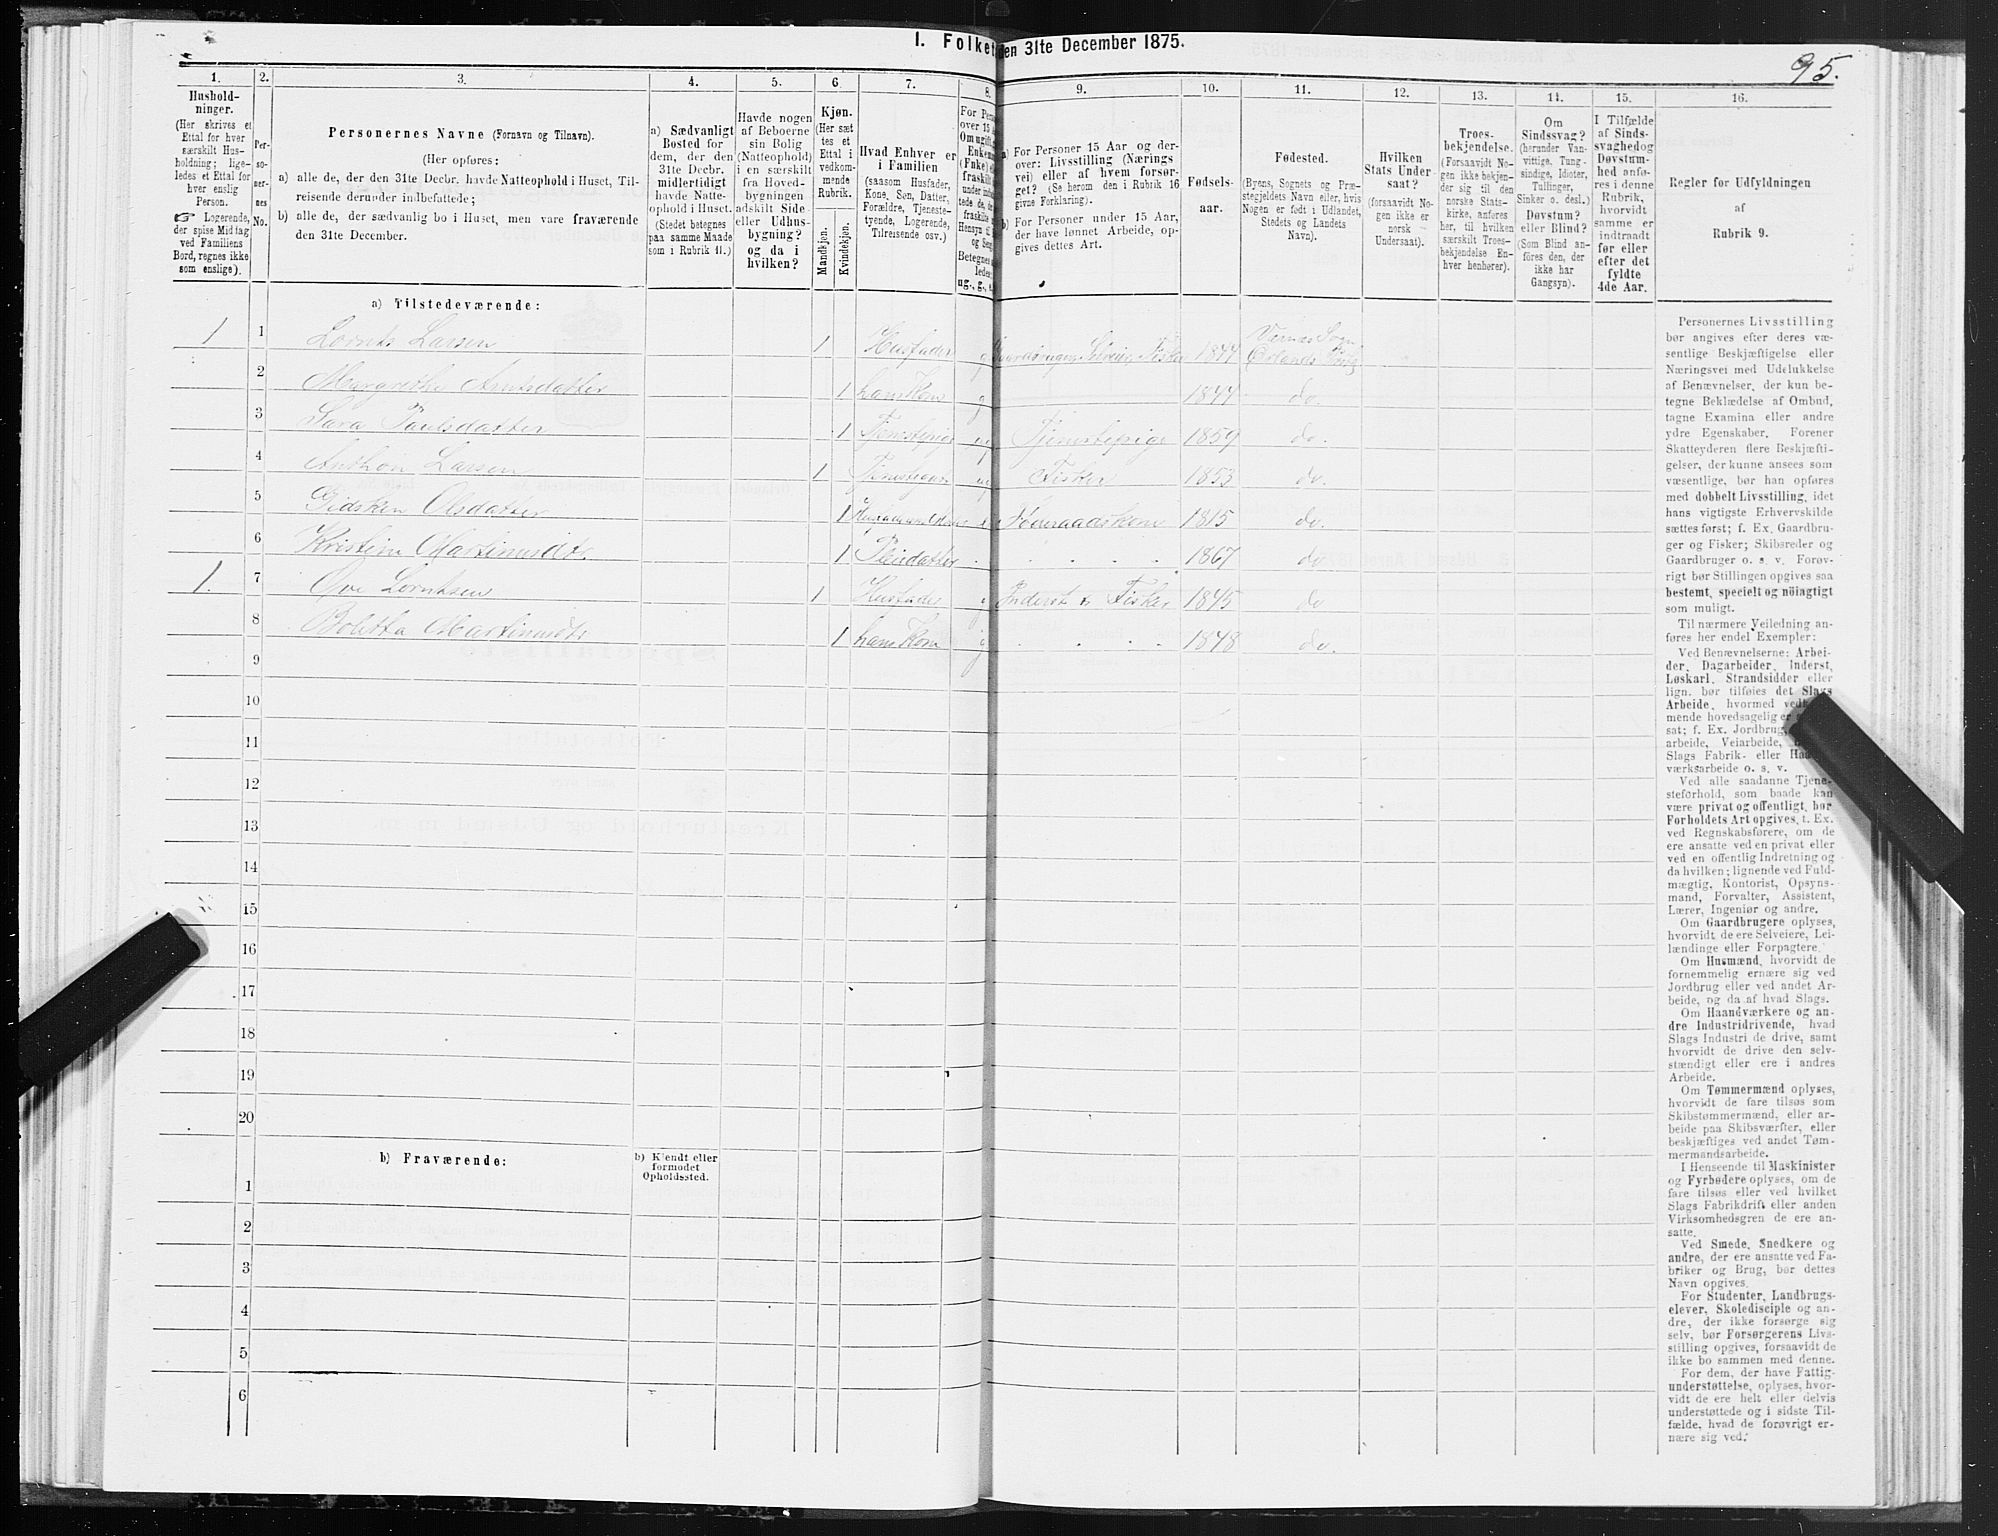 I. Folket
den 31te December 1875.
95.
1.
2.
3.
4.
5.
6.
7.
8.
9.
10.
11.
12.
13.
14.
15.
16.
Hushold-
ninger.
(Her skrives et
Ettal for hver
særskilt Hus-
holdning; lige-
ledes et Ettal for
hver enslig
Person.
☞ Logerende,
der spise Middag
ved Familiens
Bord, regnes ikke
som enslige).
Per-
so-
ner-
nes
No.
Personernes Navne (Fornavn og Tilnavn).
(Her opføres:
a) alle de, der den 31te Decbr. havde Natteophold i Huset, Til-
reisende derunder indbefattede;
b) alle de, der sædvanlig bo i Huset, men vare fraværende
den 31te December.
a) Sædvanligt
Bosted for
dem, der den
31te Decbr.
midlertidigt
havde Natte-
ophold i Huset.
(Stedet betegnes
paa samme Maade
som i Rubrik 11.)
Havde nogen
af Beboerne
sin Bolig
(Natteophold)
i en særskilt
fra Hoved-
bygningen
adskilt Side-
eller Udhus-
bygning?
og da i
hvilken?
Kjøn.
(Her sæt-
tes et
Ettal i
vedkom-
mende
Rubrik.
Mandkjøn.
Kvindekjøn.
Hvad Enhver er
i Familien
(saasom Husfader,
Kone, Søn, Datter,
Forældre, Tjeneste-
tyende, Logerende,
Tilreisende osv.)
For Pers
over 15
(Om ugift,
Enke
(Fnke)
fraskilt
under
tede de,
fraskilt
Hensyn til
og Seng
Betegnes
ledes:
ug., g., e.
a) For Personer 15 Aar og der-
over: Livsstilling (Nærings
vei) eller af hvem forsør-
get? (Se herom den i Rubrik 16
givne Forklaring).
b) For Personer under 15 Aar,
der have lønnet Arbeide, op-
gives dettes Art.
Fødsels-
aar.
Fødested.
(Byens, Sognets og Præ-
stegjeldets Navn eller, hvis
Nogen er født i Udlandet,
Stedets og Landets
Navn).
Hvilken
Stats Under-
saat?
(forsaavidt No-
gen ikke er
norsk
Undersaat).
Troes-
bekjendelse.
(Forsaavidt No-
gen ikke bekjen-
der sig til den
norske Stats-
kirke, anføres
her, til hvilken
særskilt Troes-
bekjendelse En-
hver henhører).
Om
Sindssvag?
(herunder Van-
vittige, Tung-
sindige, Idioter,
Tullinger,
Sinker o. desl.)
Døvstum?
eller Blind?
(Som Blind an-
føres den, der
ikke har
Gangsyn).
I Tilfælde
af Sinds-
svaghed og
Døvstum-
hed anfø-
res i denne
Rubrik,
hvorvidt
samme er
indtraadt
før eller
efter det
fyldte
4de Aar.
Regler for Udfyldningen
af
Rubrik 9.
a) Tilstedeværende:
1 1 Lornts Larsen 1 Husfader g Gaardbruger Selveier, Fisker 1844 Værnes Sogn
Ørlands Prg
2 Margrethe Arntsdatter 1 hans Kone g 1844 do.
3 Sara Paulsdatter 1 Tjenestepige ug Tjenestepige 1859 do.
4 Anthon Larsen 1 ug Fisker 1853 do.
5 Gidsken Olsdatter 1 Føderaadskone 1815 do.
6 Kristine Martinusdt. 1 Pleiedatter 1867 do
1. 7 Ove Lorntsen 1 Husfader g Inderst & Fisker 1845 do
8 Boletta Martinusdt 1 hans Kone g 1848 do.
9
10
11
12
13
14
15
16
17
18
19
20
b) Fraværende:
b) Kjendt eller
formodet
Opholdssted.
1
2
3
4
5
6
Personernes Livsstilling
bør angives efter deres væ-
sentlige Beskjæftigelse eller
Næringsvei med Udelukkelse
af Benævnelser, der kun be-
tegne Beklædelse af Ombud,
tagne Examina eller andre
ydre Egenskaber. Forener
Skatteyderen flere Beskjæfti-
gelser, der kunne ansees som
væsentlige, bør han opføres
med dobbelt Livsstilling, idet
hans vigtigste Erhvervskilde
sættes først; f. Ex. Gaardbru-
ger og Fisker; Skibsreder og
Gaardbruger o. s. v. Forøv-
rigt bør Stillingen opgives saa
bestemt, specielt og nøiagtigt
som muligt.
Til nærmere Veiledning an-
føres her endel Exempler:
Ved Benævnelserne: Arbei-
der, Dagarbeider, Inderst,
Løskarl, Strandsidder eller
lign. bør tilføies det Slags
Arbeide, hvormed ved
mende hovedsagelig er
sat; f. Ex. Jordbrug,
arbeide, Veiarbeide,
Slags Fabrik- eller Haand-
værksarbeide o. s. v.
Ved alle saadanne Tjene-
steforhold, som baade kan
være privat og offentligt, bør
Forholdets Art opgives, t. Ex.
ved Regnskabsførere, om de
ere ansatte ved en privat eller
ved en offentlig Indretning og
da hvilken; lignende ved Fuld-
mægtig, Kontorist, Opsyns-
mand, Forvalter, Assistent,
Lærer, Ingeniør og andre.
Om Gaardbrugere oplyses,
hvorvidt de ere Selveiere, Lei-
lændinge eller Forpagtere.
Om Husmænd, hvorvidt de
fornemmelig ernære sig ved
Jordbrug eller ved andet Ar-
beide, og da af hvad Slags.
Om Haandværkere og an-
dre Industridrivende, hvad
Slags Industri de drive, samt
hvorvidt de drive den selv-
stændigt eller ere i andres
Arbeide.
Om Tømmermænd oplyses,
hvorvidt de fare tilsøs som
Skibstømmermænd, eller ar-
beide paa Skibsværfter, eller
beskjæftiges ved andet Tøm-
mermandsarbeide.
I Henseende til Maskinister
og Fyrbødere oplyses, om de
fare tilsøs eller ved hvilket
Slags Fabrikdrift eller anden
Virksomhedsgren de ere an-
satte.
Ved Smede, Snedkere og
andre, der ere ansatte ved Fa-
briker og Brug, bør dettes
Navn opgives.
For Studenter, Landbrugs-
elever, Skoledisciple og an-
dre, der ikke forsørge sig
selv, bør Forsørgerens Livs-
stilling opgives, forsaavidt de
ikke bo sammen med denne.
For dem, der have Fattig-
understøttelse, oplyses, hvor-
vidt de ere helt eller delvis
understøttede og i sidste Til-
fælde, hvad de forøvrigt er-
nære sig ved.